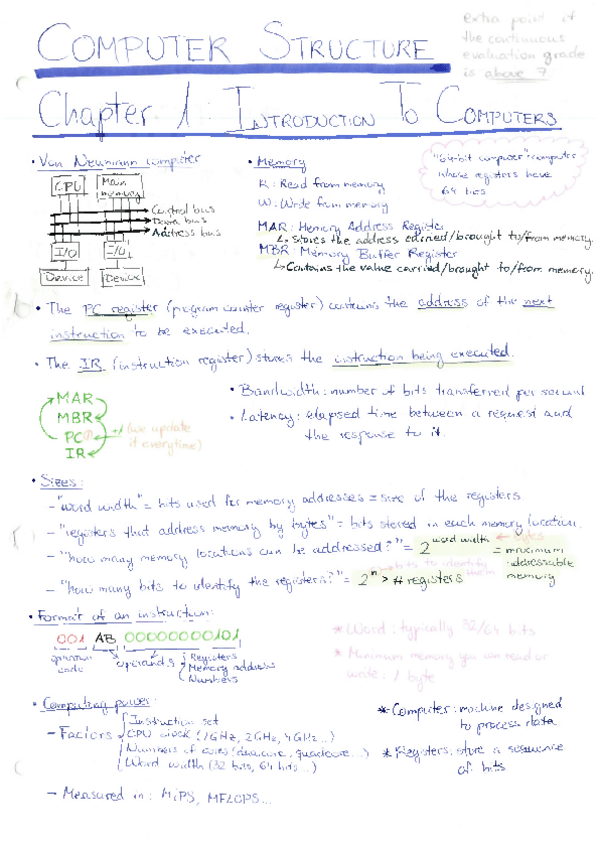 extra point if
the continuous
evaluation grade
is above 7
COMPUTER STRUCTURE
Chapter 1: INTRODUCTION TO COMPUTERS
• Von Neumann computer
CPU
Main memory
Control bus
Data bus
Address bus
I/O
I/O
Device
Device
• Memory
R: Read from memory
W: Write from memory
"64-bit computer": computer
whose registers have
64 bits
MAR: Memory Address Register
↳ stores the address carried/brought to/from memory.
MBR: Memory Buffer Register
↳ Contains the value carried/brought to/from memory.
• The PC register (program counter register) contains the address of the next
instruction to be executed.
• The IR (instruction register) stores the instruction being executed.
MAR
MBR
PC
IR
+1 (we update
it everytime)
• Bandwidth: number of bits transferred per second
• Latency: elapsed time between a request and
the response to it.
• Sizes:
- "word width" = bits used for memory addresses = size of the registers
- "registers that address memory by bytes" = bits stored in each memory location.
- "how many memory locations can be addressed?" = 2^word width = maximum
addressable
memory
bytes
- "how many bits to identify the registers?" = 2^n > # registers
bits to identify
• Format of an instruction:
001 AB 00000000101
operation
code
operands
Registers
Memory address
Numbers
* Word: typically 32/64 bits
* Minimum memory you can read or
write: 1 byte
• Computing power:
- Factors
Instruction set
CPU clock (1GHz, 2GHz, 4GHz...)
Numbers of cores (dualcore, quadcore...)
Word width (32 bits, 64 bits...)
- Measured in: MIPS, MFLOPS...
* Computer: machine designed
to process data
* Registers: store a sequence
of bits